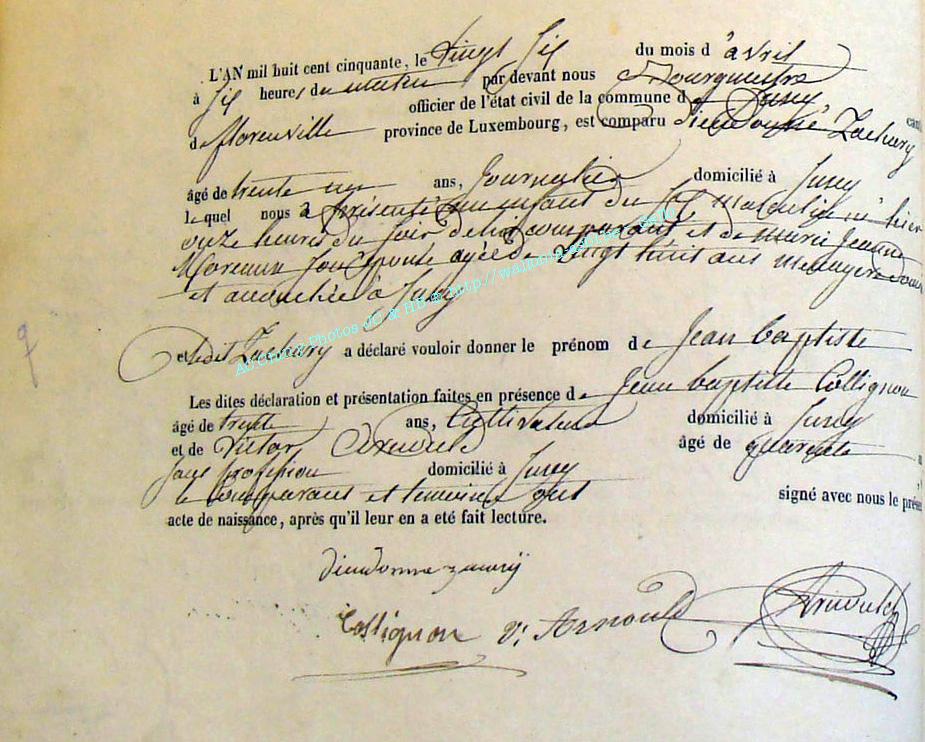 L'AN mil huit cent cinquante, le vingt six du mois d'avril
à six heures du matin par devant nous Bourgmestre
officier de l'état civil de la commune de Jusey
de florenville province de Luxembourg, est comparu Dieudonné Zachary
âgé de trente un ans, Journalier domicilié à Jusey
lequel nous a présenté un enfant du sexe masculin né hier
onze heures du soir de lui comparant et de marie Jeanne
Moreaux son épouse agée de vingt huit ans menagere domici
et à Jusey
et ledit Zachary a déclaré vouloir donner le prénom de Jean baptiste
Les dites déclaration et présentation faites en présence de Jean baptiste Collignon
âgé de trente ans, Cultivateur domicilié à Jusey
et de Victor Arnould âgé de quarante
sans profession domicilié à Jusey
le Comparant et temoins ont signé avec nous le prése
acte de naissance, après qu'il leur en a eté fait lecture.
dieudonne
Collignon v: Arnould Arnould
Archives Photos JG & HB @ http://